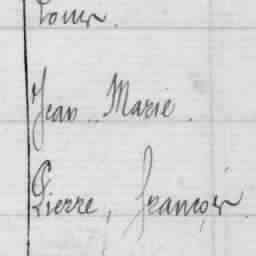 Louis.
Jean Marie.
Pierre, François